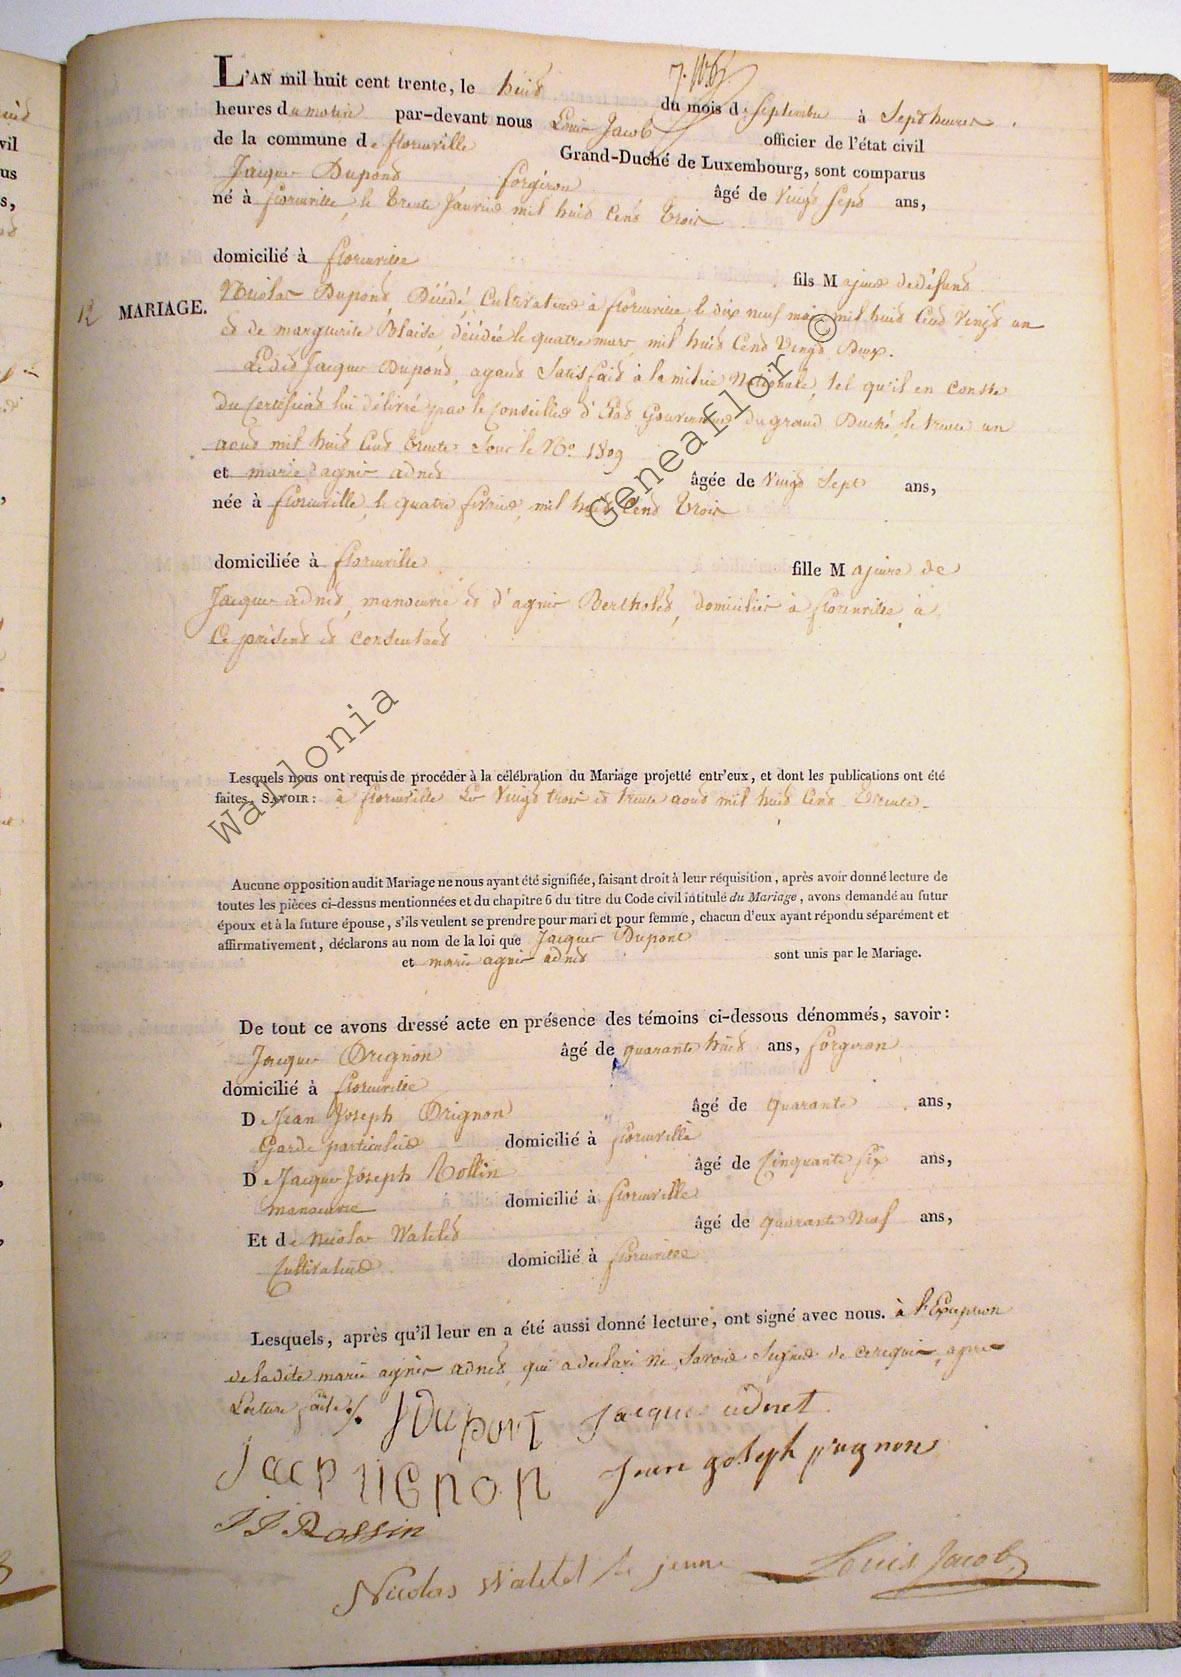 L'AN mil huit cent trente, le huit du mois de Septembre à Sept heures
heures du matin par-devant nous Louis Jacob officier de l'état civil
de la commune de florenville Grand-Duché de Luxembourg, sont comparus
Jacques Dupont forgeron âgé de Vingt Sept ans,
né à florenville, le trente Janvier mil huit Cent trois
domicilié à florenville fils Majeur de défunt
12 MARIAGE.
Nicolas Dupont, Décédé, Cultivateur à florenville, le dix neuf mars mil huit Cent Vingt un
et de marguerite Blaise, décédée le quatre mars, mil huit Cent Vingt Deux.
Ledit Jacques Dupont, ayant Satisfait à la milice Nationale, tel qu'il en conste
Du Certificat lui délivré par le Conseiller d'Etat Gouverneur du grand Duché, le trente un
aout mil huit Cent trente Sous le No. 1809
et marie agnès adnet âgée de Vingt Sept ans,
née à florenville, le quatre fevrier, mil huit Cent trois
domiciliée à florenville fille Majeure de
Jacques adnet, manoeuvre et d'agnès Bertholet, domiciliés à florenville, à
Ce présent et consentant
Lesquels nous ont requis de procéder à la célébration du Mariage projetté entr'eux, et dont les publications ont été
faites, SAVOIR : à florenville Les Vingt trois et trente aout mil huit Cent trente.
Aucune opposition audit Mariage ne nous ayant été signifiée, faisant droit à leur réquisition, après avoir donné lecture de
toutes les pièces ci-dessus mentionnées et du chapitre 6 du titre du Code civil intitulé du Mariage, avons demandé au futur
époux et à la future épouse, s'ils veulent se prendre pour mari et pour femme, chacun d'eux ayant répondu séparément et
affirmativement, déclarons au nom de la loi que Jacques Dupont
et marie agnès adnet sont unis par le Mariage.
De tout ce avons dressé acte en présence des témoins ci-dessous dénommés, savoir :
Jacques Prignon âgé de quarante huit ans, forgeron
domicilié à florenville
De Jean Joseph Prignon âgé de quarante ans,
Garde particulier domicilié à florenville
De Jacques Joseph Rossin âgé de Cinquante six ans,
manoeuvre domicilié à florenville
Et de Nicolas Watelet âgé de quarante Neuf ans,
Cultivateur domicilié à florenville
Lesquels, après qu'il leur en a été aussi donné lecture, ont signé avec nous. à l'Exception
de ladite marie agnès adnet, qui a déclaré ne Savoir Signer de ce requise, après
Lecture faite
J Dupont Jacques adnet
Jac prignon Jean Joseph prignon
J J Rossin
Nicolas Watelet le jeune Louis Jacob
Wallonia Geneaflor ©